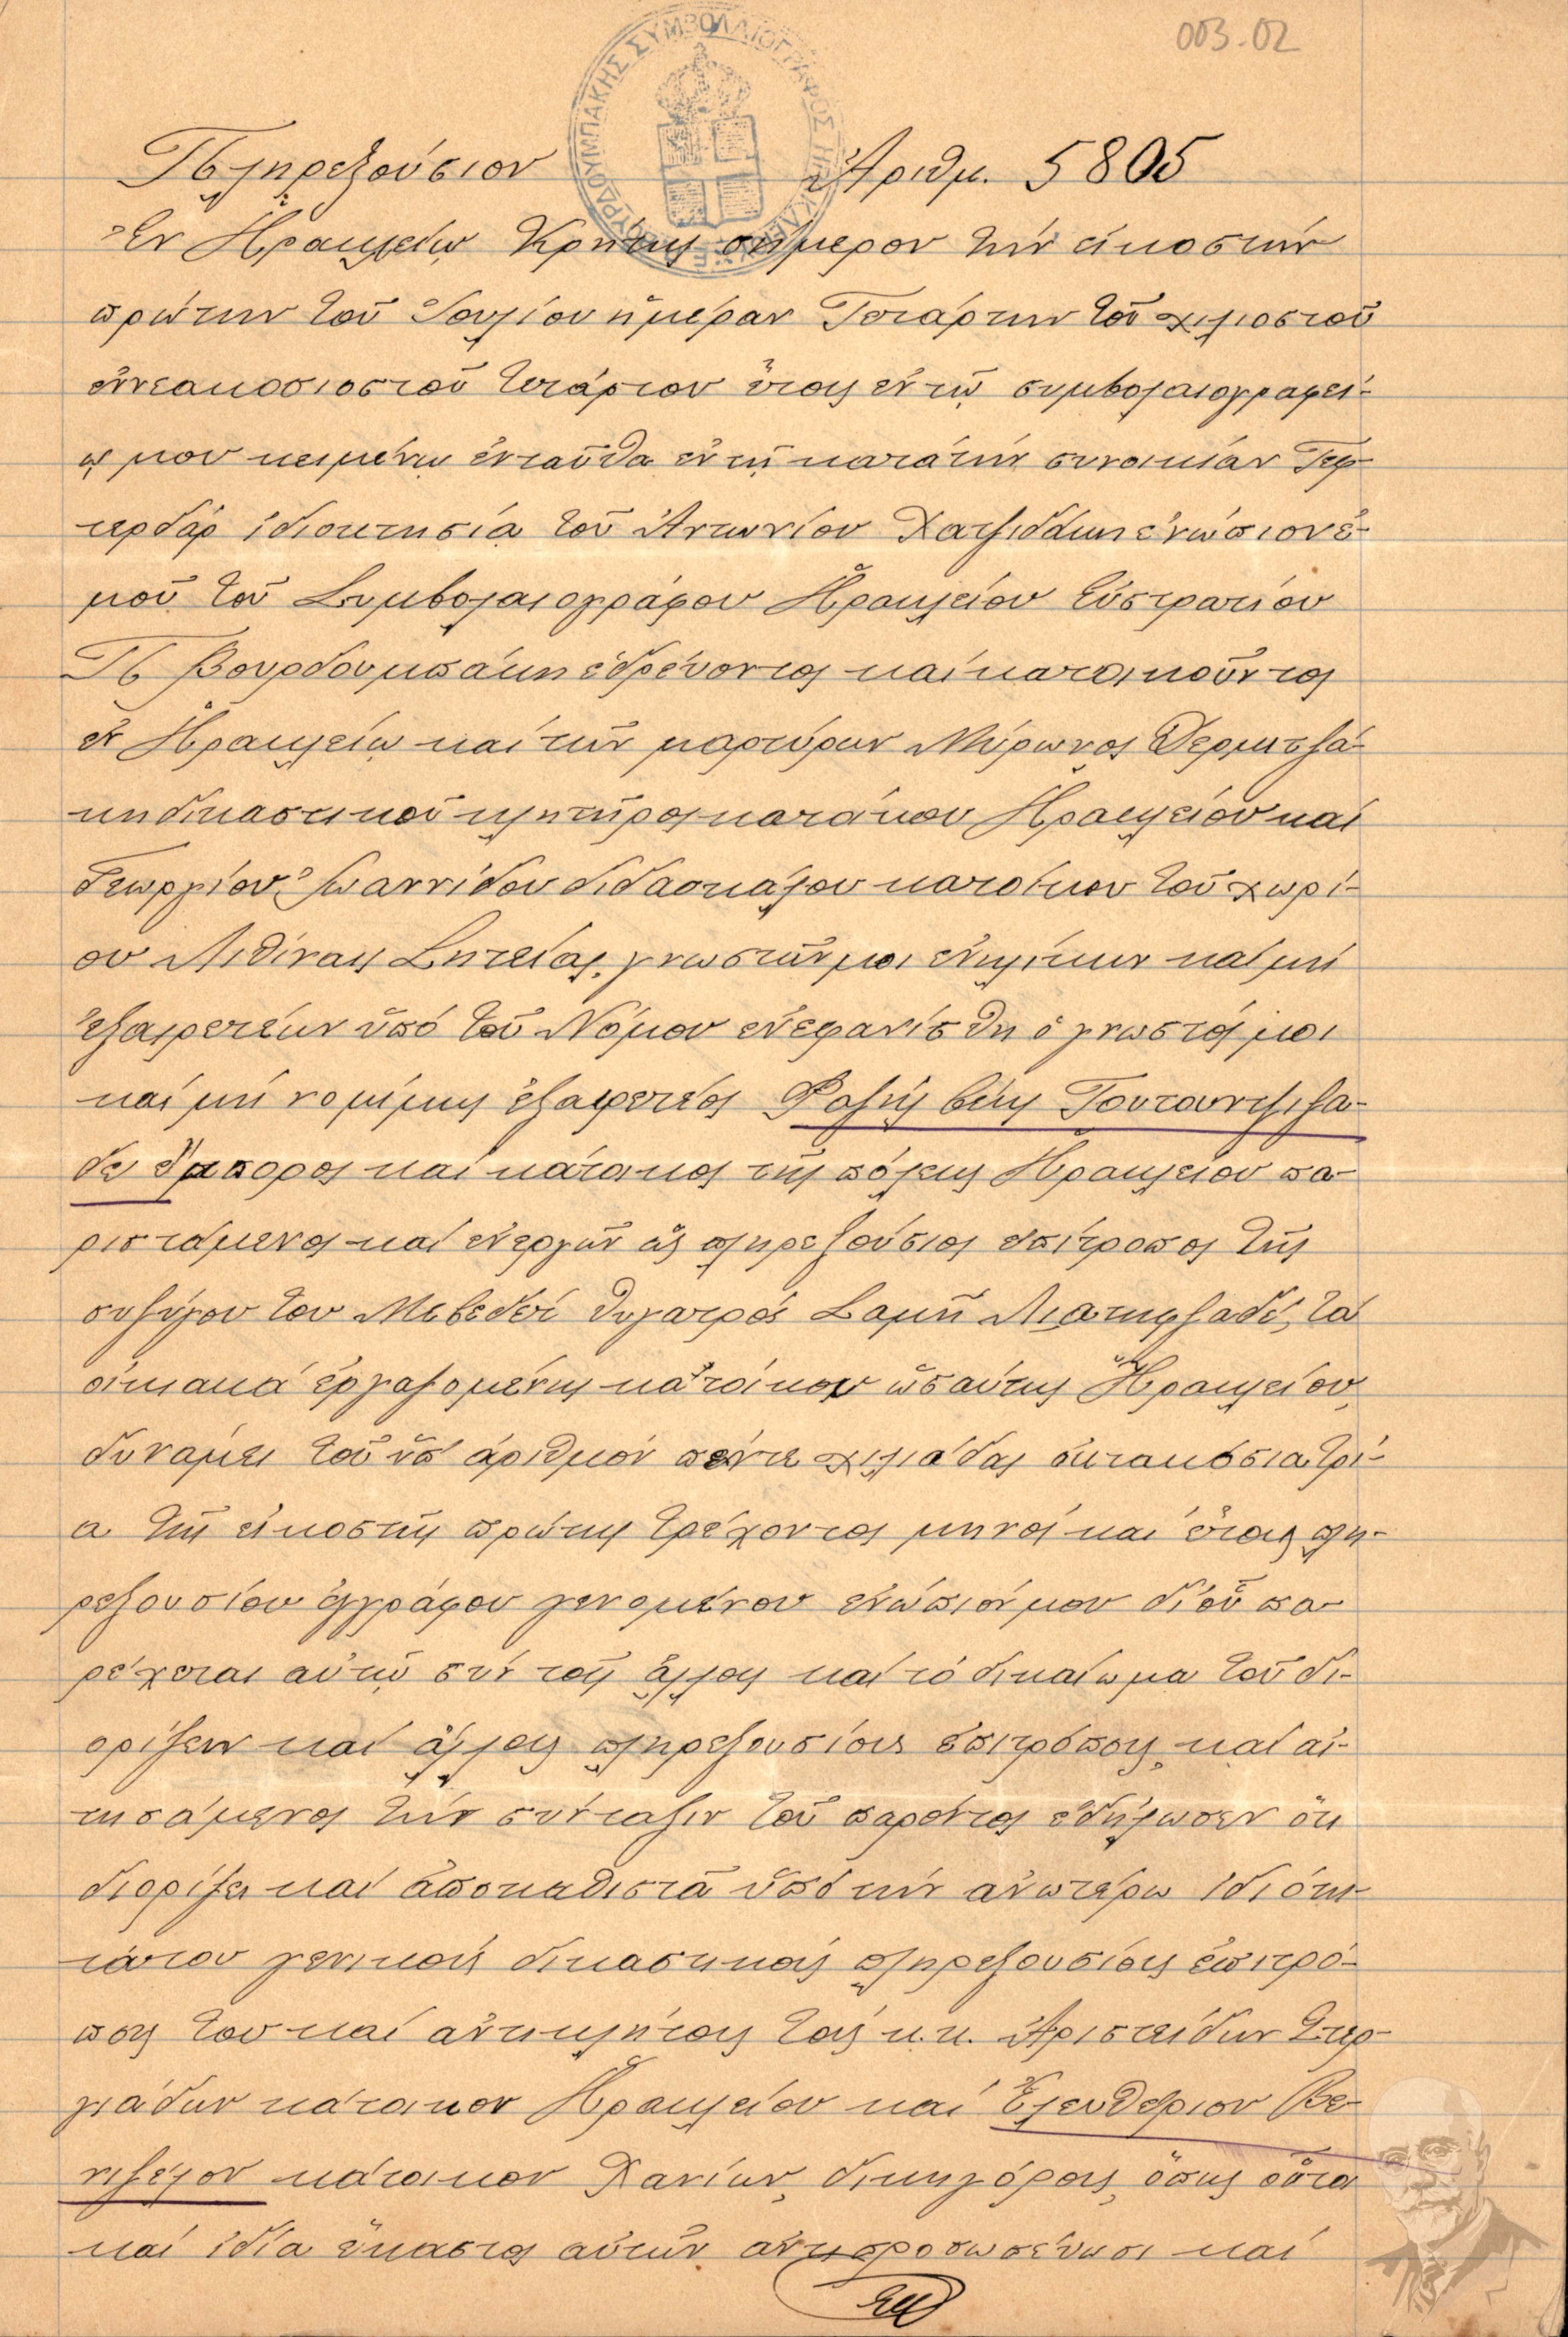 003-02
ΣΥΜΒΟΛΑΙΟΓΡΑΦΟΣ ΗΡΑΚΛΕΙΟΥ ΒΟΥΡΔΟΥΜΠΑΚΗΣ
Πληρεξούσιον Ἀριθμ. 5805
Ἐν Ἡρακλείῳ Κρήτης σήμερον τήν εἰκοστήν
πρώτην τοῦ Ἰουλίου ἡμέραν Τετάρτην τοῦ χιλιοστοῦ
ἐννεακοσιοστοῦ τετάρτου ἔτους ἐν τῷ συμβολαιογραφεί-
ῳ μου κειμένῳ ἐνταῦθα ἐν τῇ κατά τήν συνοικίαν Τεφ-
τερδάρ ἰδιοκτησίᾳ τοῦ Ἀντωνίου Χατζιδάκη ἐνώπιον ἐ-
μοῦ τοῦ Συμβολαιογράφου Ἡρακλείου Εὐστρατίου
Π Βουρδουμπάκη ἑδρεύοντος καί κατοικοῦντος
ἐν Ἡρακλείῳ καί τῶν μαρτύρων Μύρωνος Δερμιτζά-
κη δικαστικοῦ κλητῆρος κατοίκου Ἡρακλείου καί
Γεωργίου Ἰωαννίδου διδασκάλου κατοίκου τοῦ χωρί-
ου Λιθίναις Σητείας, γνωστῶν μοι ἐνηλίκων καί μή
ἐξαιρετέων ὑπό τοῦ Νόμου ἐνεφανίσθη ὁ γνωστός μοι
καί μή νομίμως ἐξαιρετέος βέης Τουτουντζιζα-
δές ἔμπορος καί κάτοικος τῆς πόλεως Ἡρακλείου πα-
ριστάμενος καί ἐνεργῶν ὡς πληρεξούσιος ἐπίτροπος τῆς
συζύγου του θυγατρός Σαμῆ τά
οἰκιακά ἐργαζομένης κατοίκου ὡσαύτως Ἡρακλείου,
δυνάμει τοῦ ὑπ' ἀριθμόν πέντε χιλιάδας ὀκτακόσια τρί-
α τῆς εἰκοστῆς πρώτης τρέχοντος μηνός καί ἔτους πλη-
ρεξουσίου ἐγγράφου γενομένου ἐνώπιόν μου δι' οὗ πα-
ρέχεται αὐτῷ σύν τοῖς ἄλλοις καί τό δικαίωμα τοῦ δι-
ορίζειν καί ἄλλους πληρεξουσίους ἐπιτρόπους, καί αἰ-
τησάμενος τήν σύνταξιν τοῦ παρόντος ἐδήλωσεν ὅτι
διορίζει καί ἀποκαθιστᾶ ὑπό τήν ἀνωτέρω ἰδιότη-
τά του γενικούς δικαστικούς πληρεξουσίους ἐπιτρό-
πους του καί ἀντικλήτους τούς κ.κ. Ἀριστείδην Στερ-
γιάδην κάτοικον Ἡρακλείου καί Ἐλευθέριον Βε-
νιζέλον κάτοικον Χανίων, δικηγόρους, ὅπως οὗτοι
καί ἰδίᾳ ἕκαστος αὐτῶν ἀντιπροσωπεύωσι καί